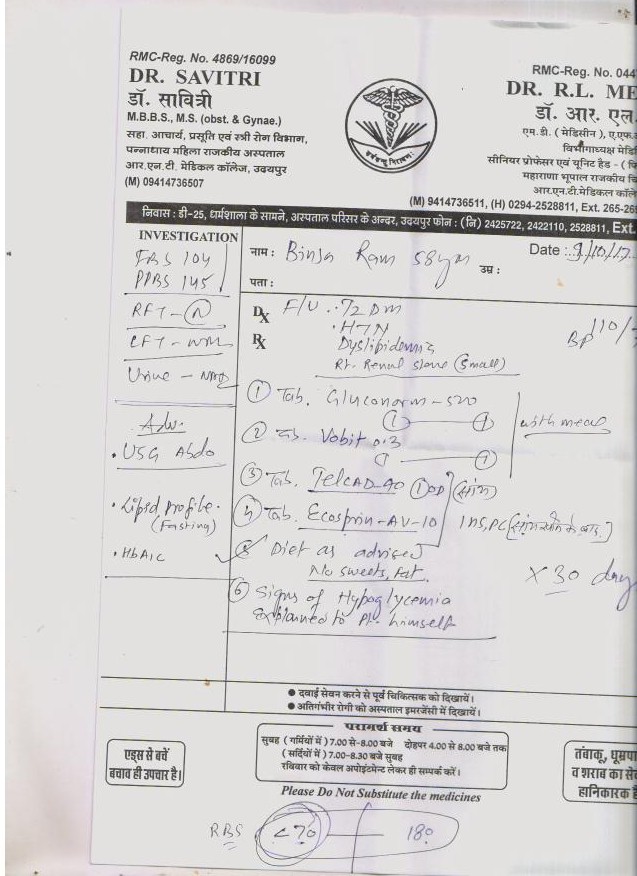 RMC-Reg. No. 4869/16099
DR. SAVITRI
डॉ. सावित्री
M.B.B.S., M.S. (obst. & Gynae.)
सहा. आचार्य, प्रसूति एवं स्त्री रोग विभाग,
पन्नाधाय महिला राजकीय अस्पताल
आर.एन.टी. मेडिकल कॉलेज, उदयपुर
(M) 09414736507
RMC-Reg. No. 044
DR. R.L. ME
डॉ. आर. एल.
एम.डी. ( मेडिसीन ), ए.एफ.
विभागाध्यक्ष मेडि
सीनियर प्रोफेसर एवं यूनिट हेड - ( फि
महाराणा भूपाल राजकीय चि
आर.एन.टी.मेडिकल कॉले
(M) 9414736511, (H) 0294-2528811, Ext. 265-26
निवास : डी-25, धर्मशाला के सामने, अस्पताल परिसर के अन्दर, उदयपुर फोन : (नि) 2425722, 2422110, 2528811, Ext.
INVESTIGATION
FBS 104
PPBS 145
RFT - N
LFT - WNL
Urine -
Adv.
• USG Abdo
• Lipid Profile.
(Fasting)
• HbA1c
नाम : Binja Ram 58ym
उम्र :
Date : 9/10/17
पता :
Dx F/U :- T2DM
• HTN
BP 110/
Rx Dyslipidemia
Rt. Renal stone (small)
① Tab. Gluconorm - 500
① ①
with meals
② Tab. Vobit 0.3
① ①
③ Tab. TelCAD-40 ① OD (सांय)
④ Tab. Ecosprin-AV-10
⑤ Diet as advised
No sweets, fat.
X 30 days
⑥ Signs of Hypoglycemia
explained to Pt. himself
● दवाई सेवन करने से पूर्व चिकित्सक को दिखायें।
● अतिगंभीर रोगी को अस्पताल इमरजेंसी में दिखायें।
परामर्श समय
सुबह ( गर्मियों में ) 7.00 से-8.00 बजे दोहपर 4.00 से 8.00 बजे तक
( सर्दियों में ) 7.00-8.30 बजे सुबह
रविवार को केवल अपोइंटमेन्ट लेकर ही सम्पर्क करें।
एड्स से बचें
बचाव ही उपचार है।
तंबाकू, धूम्रपा
व शराब का से
हानिकारक है
Please Do Not Substitute the medicines
RBS <70 180